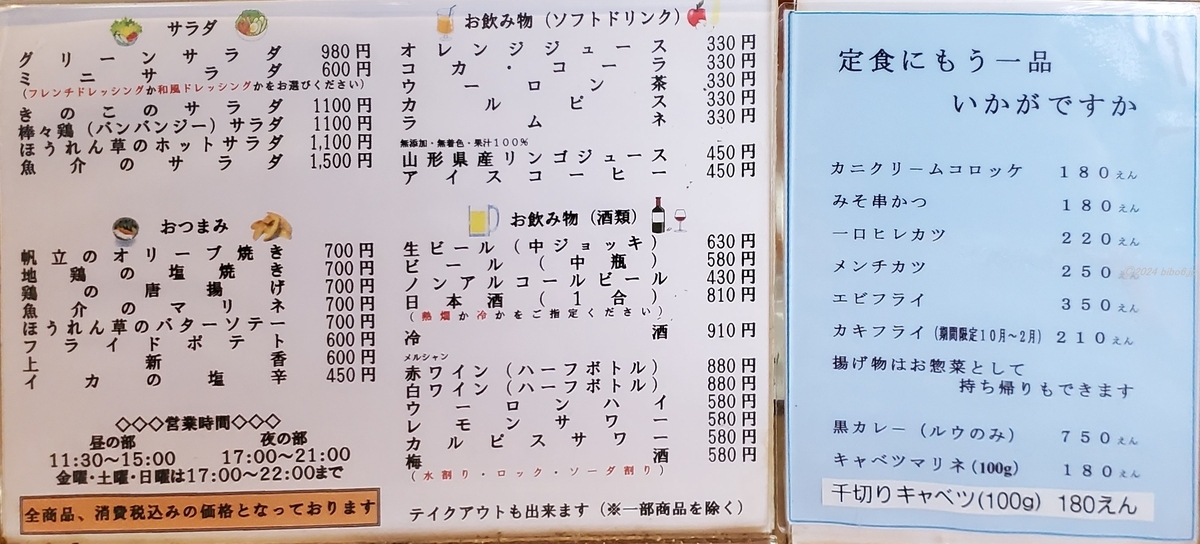 サラダ
グリーンサラダ 980円
ミニサラダ 600円
(フレンチドレッシングか和風ドレッシングかをお選びください)
きのこのサラダ 1100円
棒々鶏(バンバンジー)サラダ 1100円
ほうれん草のホットサラダ 1,100円
魚介のサラダ 1,500円
おつまみ
帆立のオリーブ焼き 700円
地鶏の塩焼き 700円
鶏の唐揚げ 700円
魚介のマリネ 700円
ほうれん草のバターソテー 700円
フライドポテト 600円
上新香 600円
イカの塩辛 450円
◇◇◇営業時間◇◇◇
昼の部 夜の部
11:30～15:00 17:00～21:00
金曜・土曜・日曜は17:00～22:00まで
全商品、消費税込みの価格となっております
お飲み物(ソフトドリンク)
オレンジジュース 330円
コカ・コーラ 330円
ウーロン茶 330円
カルピス 330円
ラムネ 330円
無添加・無着色・果汁100%
山形県産リンゴジュース 450円
アイスコーヒー 450円
お飲み物(酒類)
生ビール(中ジョッキ) 630円
ビール(中瓶) 580円
ノンアルコールビール 430円
日本酒(1合) 810円
(熱燗か冷かをご指定ください)
冷酒 910円
メルシャン
赤ワイン(ハーフボトル) 880円
白ワイン(ハーフボトル) 880円
ウーロンハイ 580円
レモンサワー 580円
カルピスサワー 580円
梅酒 580円
(水割り・ロック・ソーダ割り)
テイクアウトも出来ます(※一部商品を除く)
定食にもう一品
いかがですか
カニクリームコロッケ 180えん
みそ串かつ 180えん
一口ヒレカツ 220えん
メンチカツ 250えん
エビフライ 350えん
カキフライ(期間限定10月～2月) 210えん
揚げ物はお惣菜として
持ち帰りもできます
黒カレー(ルウのみ) 750えん
キャベツマリネ(100g) 180えん
千切りキャベツ(100g) 180えん